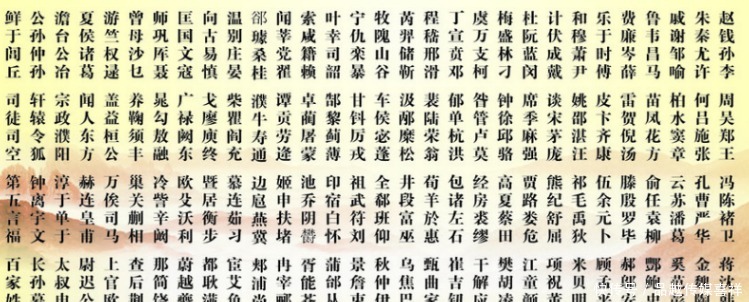 赵钱孙李 周吴郑王 冯陈褚卫 蒋
朱秦尤许 何吕施张 孔曹严华 金
戚谢邹喻 柏水窦章 云苏潘葛 奚
鲁韦昌马 苗凤花方 俞任袁柳 酆
费廉岑薛 雷贺倪汤 滕殷罗毕 郝
乐于时傅 皮卞齐康 伍余元卜 顾
和穆萧尹 姚邵湛汪 祁毛禹狄 米贝
计伏成戴 谈宋茅庞 熊纪舒屈 项祝
杜阮蓝闵 席季麻强 贾路娄危 江童
梅盛林刁 钟徐邱骆 高夏蔡田 樊胡
虞万支柯 昝管卢莫 经房裘缪 干解
丁宣贲邓 郁单杭洪 包诸左石 崔吉
程嵇邢滑 裴陆荣翁 荀羊於惠 甄曲
芮羿储靳 汲邴糜松 井段富巫 乌焦
牧隗山谷 车侯宓蓬 全郗班仰 秋仲
宁仇栾暴 甘钭厉戎 祖武符刘 景詹
叶幸司韶 郜黎蓟薄 印宿白怀 蒲邰
索咸籍赖 卓蔺屠蒙 池乔阴鬱 胥能
闻莘党翟 谭贡劳逄 姬申扶堵 冉宰
郤璩桑桂 濮牛寿通 边扈燕冀 郏浦
温别庄晏 柴瞿阎充 慕连茹习 宦艾
向古易慎 戈廖庾终 暨居衡步 都耿
匡国文寇 广禄阙东 欧殳沃利 蔚越
师巩厍聂 晁勾敖融 冷訾辛阚 那简
曾毋沙乜 养鞠须丰 巢关蒯相 查后
游竺权逯 盖益桓公 万俟司马 上官
夏侯诸葛 闻人东方 赫连皇甫 尉迟
澹台公冶 宗政濮阳 淳于单于 太叔
公孙仲孙 轩辕令狐 钟离宇文 长孙
鲜于闾丘 司徒司空 第五言福 百家姓